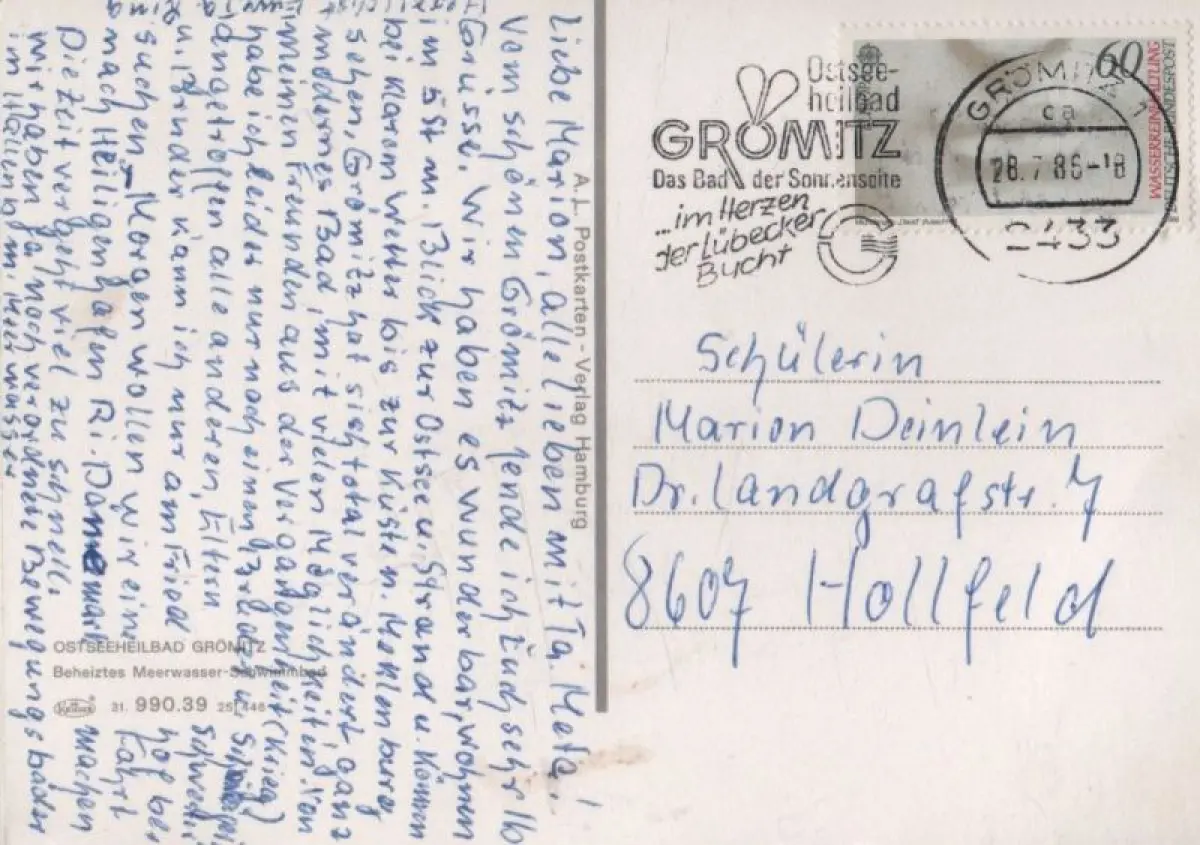 Liebe Marion, alle lieben mit Ta. Meta!
Vom schönen Grömitz sende ich Euch sehr lb
Grüsse. Wir haben es wunderbar, wohnen
im 5 St m. Blick zur Ostsee u. Strand u. können
bei klarem Wetter bis zur Küste n. Mecklenburg
sehen, Grömitz hat sich total verändert, ganz
modernes Bad, mit vielen Möglichkeiten. Von
meinen Freunden aus der Vergangenheit (Krieg)
habe ich leider nur noch einen Bruder u.
angetroffen alle anderen, Eltern
u. Brüder kann ich nur am Fried
hof be
suchen – Morgen wollen wir eine
Fahrt
nach Heiligenhafen Ri. Dänemark
machen
Die Zeit vergeht viel zu schnell,
wir haben ja noch verordnete Bewegungsbäder
im Hallen m. Meerwasser
A. L. Postkarten - Verlag Hamburg
OSTSEEHEILBAD GRÖMITZ
Beheiztes Meerwasser-Schwimmbad
31. 990.39 25[448
Ostsee-
heilbad
GRÖMITZ
Das Bad der Sonnenseite
...im Herzen
der Lübecker
Bucht
GRÖMITZ 1
ca
28.7.86-18
2433
60
WASSERREINHALTUNG
DEUTSCHE BUNDESPOST
Schülerin
Marion Deinlein
Dr. Landgrafstr. 7
8607 Hollfeld